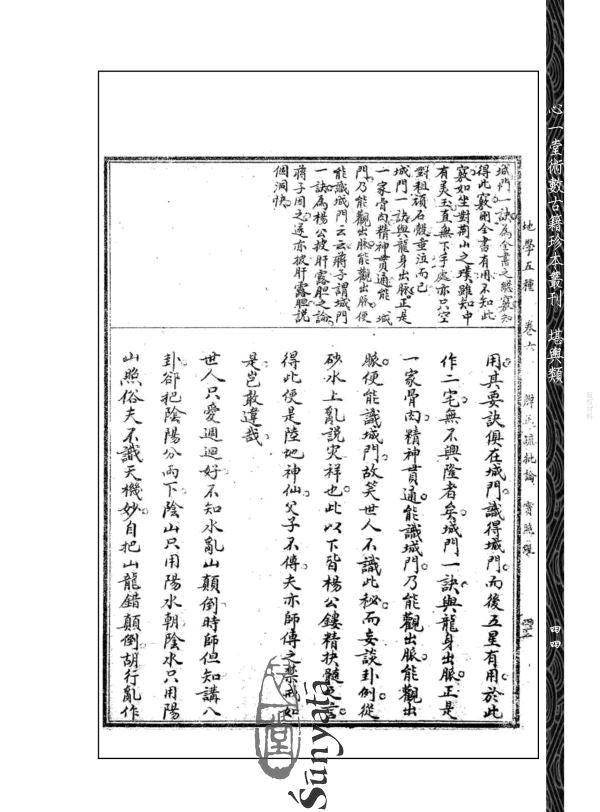 心一堂術數古籍珍本叢刊 堪輿類
四四
地學五種 卷六 辨正疏批論 寶照經
城門一訣為全書之竅竅知
得此竅則全書有用不知此
竅如坐對荊山之璞雖知中
有美玉直無下手處亦只空
對粗頑石殼垂泣而已
城門一訣與龍身出脈正是
一家骨肉精神貫通能識城
門乃能觀出脈能觀出脈便
能識城門云云蔣子謂城門
一訣為楊公披肝露胆之論
蔣子因之遂亦披肝露胆說
個洞快
用其要訣俱在城門識得城門而後五星有用於此
作二宅無不興隆者矣城門一訣與龍身出脈正是
一家骨肉精神貫通能識城門乃能觀出脈能觀出
脈便能識城門故笑世人不識此秘而妄談卦例從
砂水上亂說災祥也此以下皆楊公鏤精抉髓之言
得此便是陸地神仙父子不傳夫亦師傳之禁戒如
是豈敢違哉
世人只愛週迴好不知水亂山顛倒時師但知講八
卦卻把陰陽分兩下陰山只用陽水朝陰水只用陽
山照俗夫不識天機妙自把山龍錯顛倒胡行亂作
心一堂
Śūnyatā